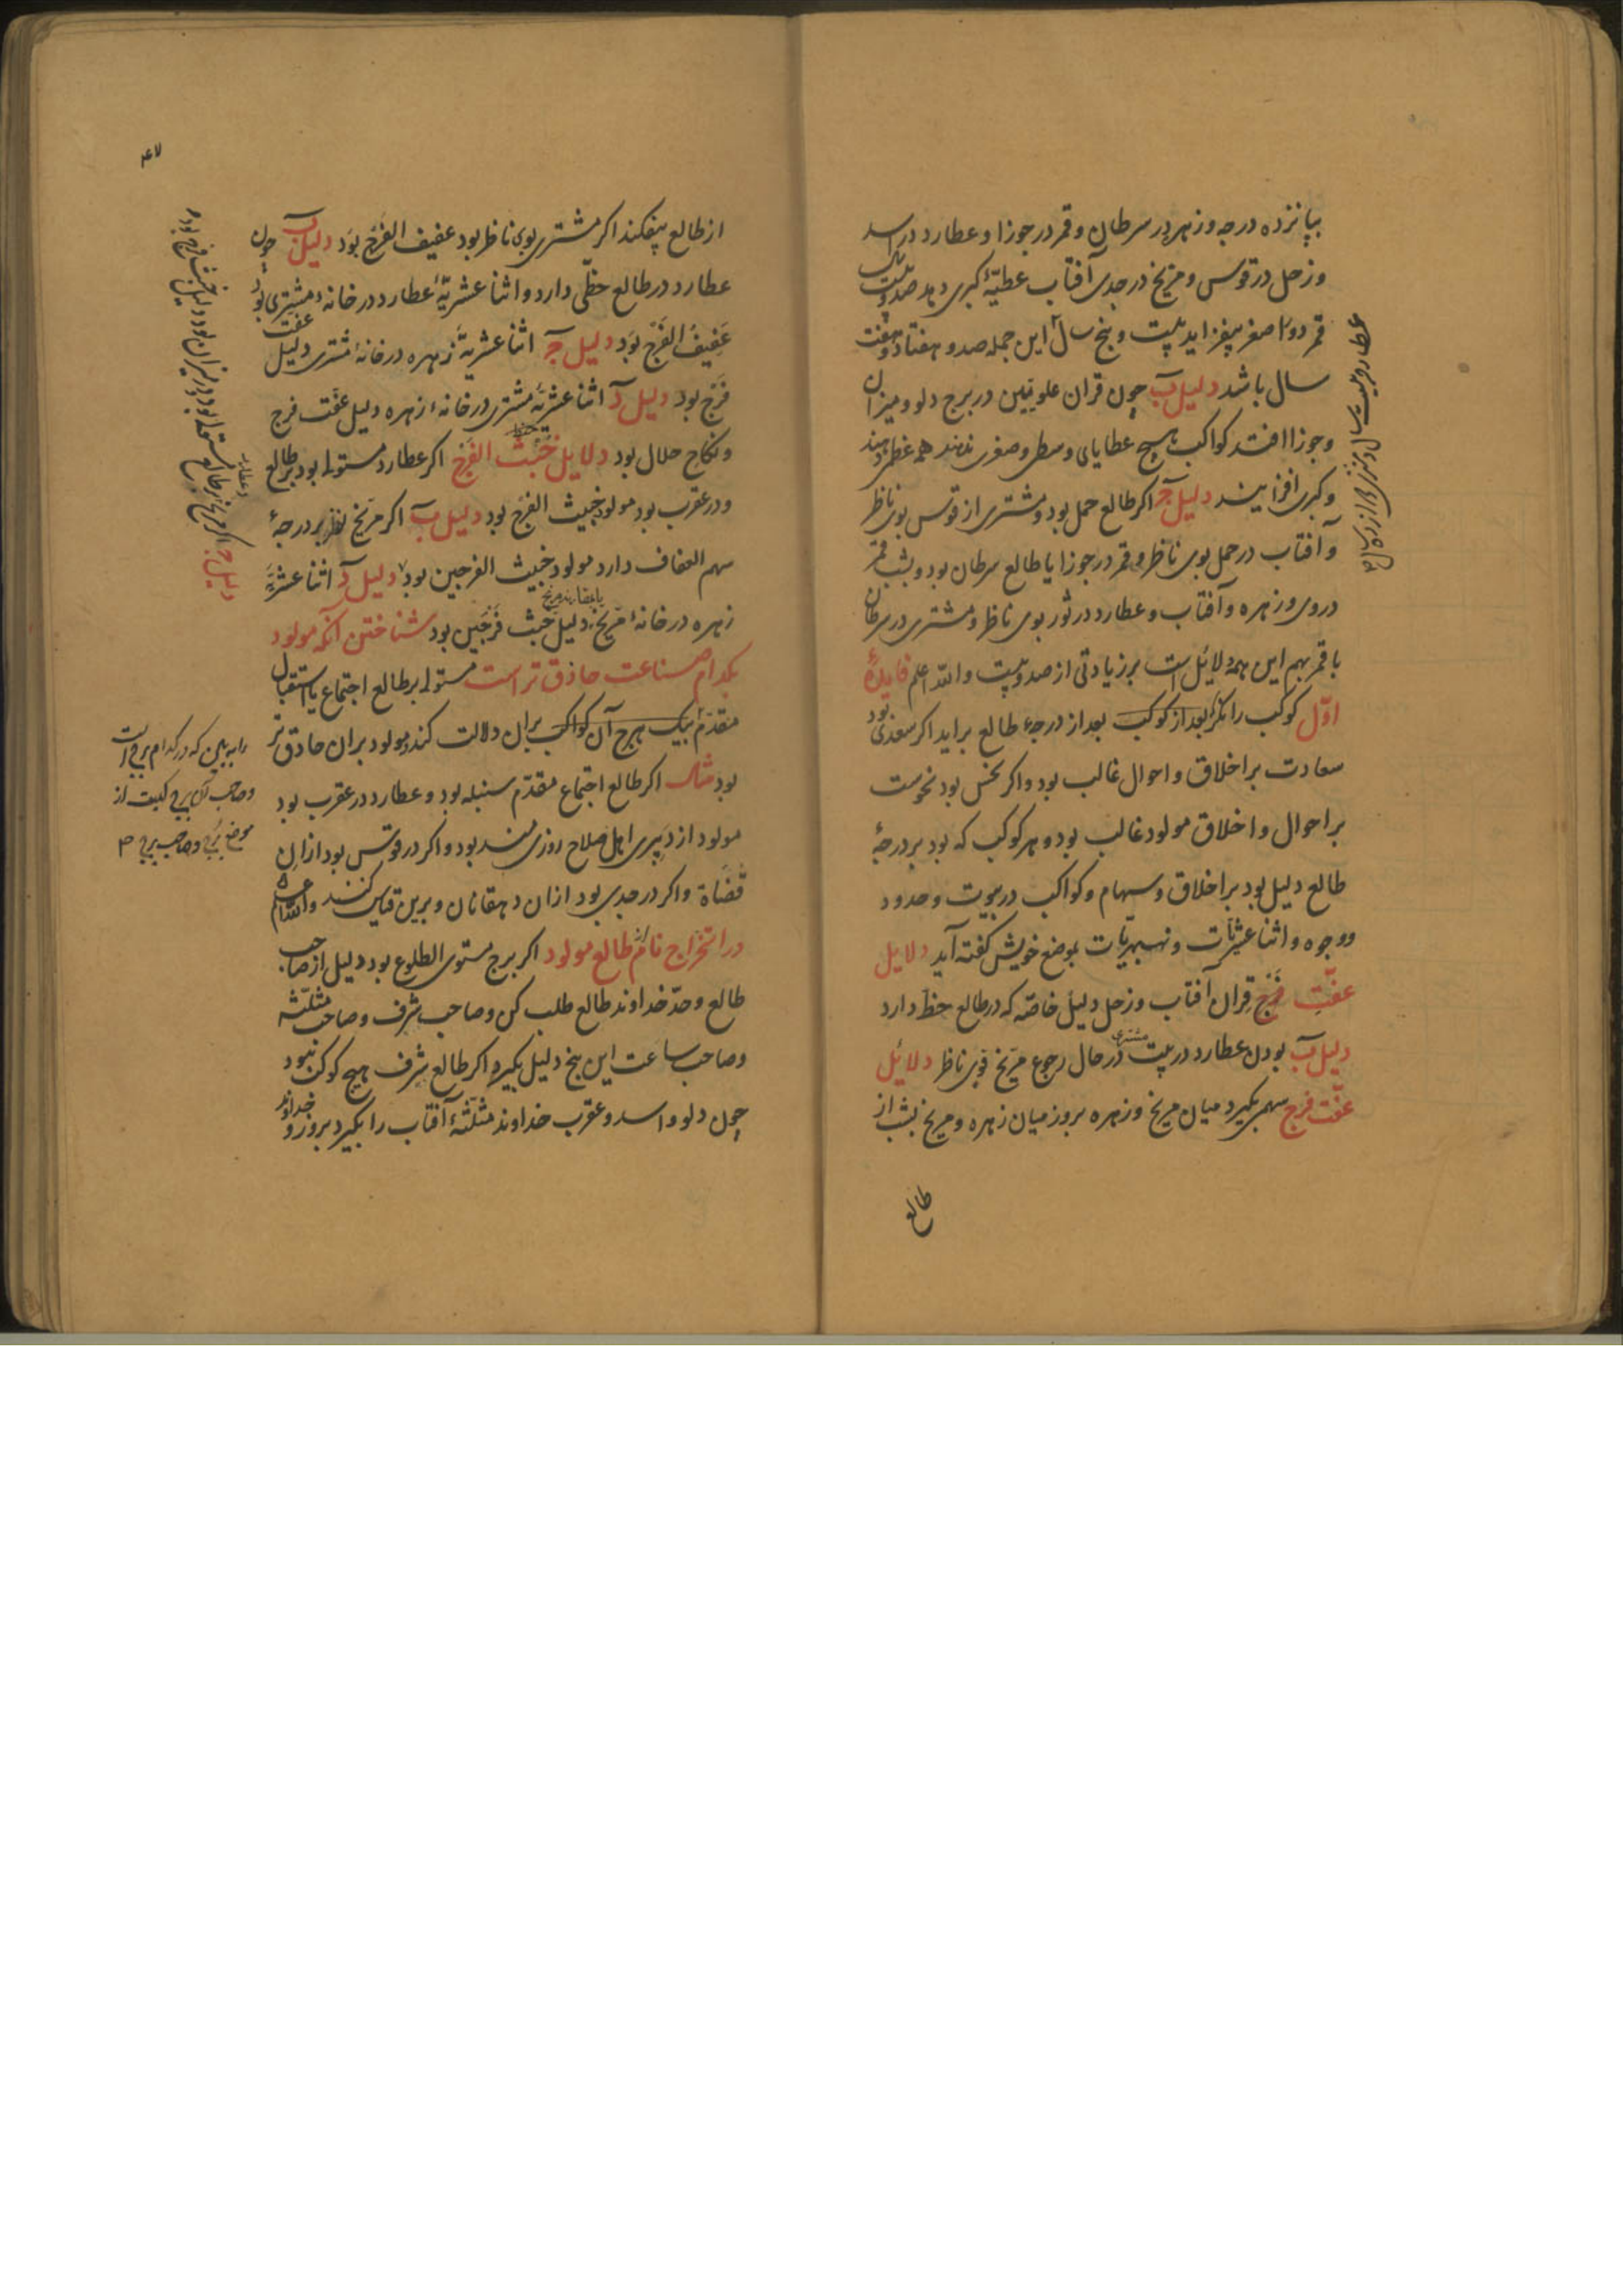 بپانزده درجه و زهره در سرطان و قمر در جوزا و عطارد در اسد
و زحل در قوس و مریخ در جدی آفتاب عطیّهٔ کبری دهد صد و بیست سال
قمر دور اصغر بیفزاید بیست و پنج سال این جمله صد و هفتاد و هفت
سال باشد دلیل ب چون قران علویین در برج دلو و میزان
و جوزا افتد کواکب هیچ عطایای وسطی و صغری ندهند همه عظمی دهند
و کبری افزایند دلیل ج اکر طالع حمل بود و مشتری از قوس بوی ناظر
و آفتاب در حمل بوی ناظر و قمر در جوزا یا طالع سرطان بود و بشب قمر
در وی و زهره و آفتاب و عطارد در ثور بوی ناظر و مشتری در سرطان
با قمر بهم این همه دلائل است بر زیادتی از صد و بیست و الله اعلم فایدهٔ
اوّل کوکب را نکر بعد از کوکب بعد از درجهٔ طالع براید اکر سعدی بود
سعادت بر اخلاق و احوال غالب بود و اکر نحس بود نحوست
بر احوال و اخلاق مولود غالب بود و هر کوکب که بود بر درجهٔ
طالع دلیل بود بر اخلاق و سهام و کواکب در بیوت و حدود
و وجوه و اثنا عشریّات و نهبهریّات بموضع خویش کفته آید دلایل
عفّت فرج قران آفتاب و زحل دلیل خاصّه که در طالع حظّ دارد
دلیل ب بودن عطارد در بیت مشتری در حال رجوع مریخ قوی ناظر دلائل
عفّت فرج سهمی بکیرد میان مریخ و زهره بروز میان زهره و مریخ بشب از
طالع
عطارد بیست سال و مشتری
از طالع بیفکند اکر مشتری بوی ناظر بود عفیف الفرج بود دلیل ب چون
عطارد در طالع حظّی دارد و اثنا عشریّهٔ عطارد در خانهٔ مشتری بود
عفیف الفرج بود دلیل ج اثنا عشریّهٔ زهره در خانهٔ مشتری دلیل عفت
فرج بود دلیل د اثنا عشریّهٔ مشتری در خانهٔ زهره دلیل عفّت فرج
و نکاح حلال بود دلایل خبث الفرج اکر عطارد مستولی بود بر طالع
و در عقرب بود مولود خبیث الفرج بود دلیل ب اکر مریخ نظر بر درجهٔ
سهم العفاف دارد مولود خبیث الفرجین بود دلیل د اثنا عشریّهٔ
زهره در خانهٔ مریخ دلیل خبث فرجین بود شناختن آنکه مولود
بکدام صناعت حاذق تر است مستولی بر طالع اجتماع یا استقبال
متقدّم ببیک بهرچ آن کواکب بران دلالت کند مولود بران حاذق تر
بود مثال اکر طالع اجتماع مقدّم سنبله بود و عطارد در عقرب بود
مولود از دبیری اهل صلاح روزی مند بود و اکر در قوس بود از ان
قضاة و اکر در جدی بود از ان دهقانان و برین قیاس کنند و الله اعلم
در استخراج نام طالع مولود اکر برج مستوی الطلوع بود دلیل از صاحب
طالع و حدّ خداوند طالع طلب کن و صاحب شرف و صاحب مثلّثه
و صاحب ساعت این پنج دلیل بکیرد اکر طالع شرف هیچ کوکب نبود
چون دلو و اسد و عقرب خداوند مثلّثهٔ آفتاب را بکیرد بروز و خداوند
دلیل ج اکر مریخ بر طالع مستولی بود و در میزان بود دلیل خبث فرج بود
را ببین که در کدام برج است
و صاحب آن برج کیست از
موضع برج و صاحب برج